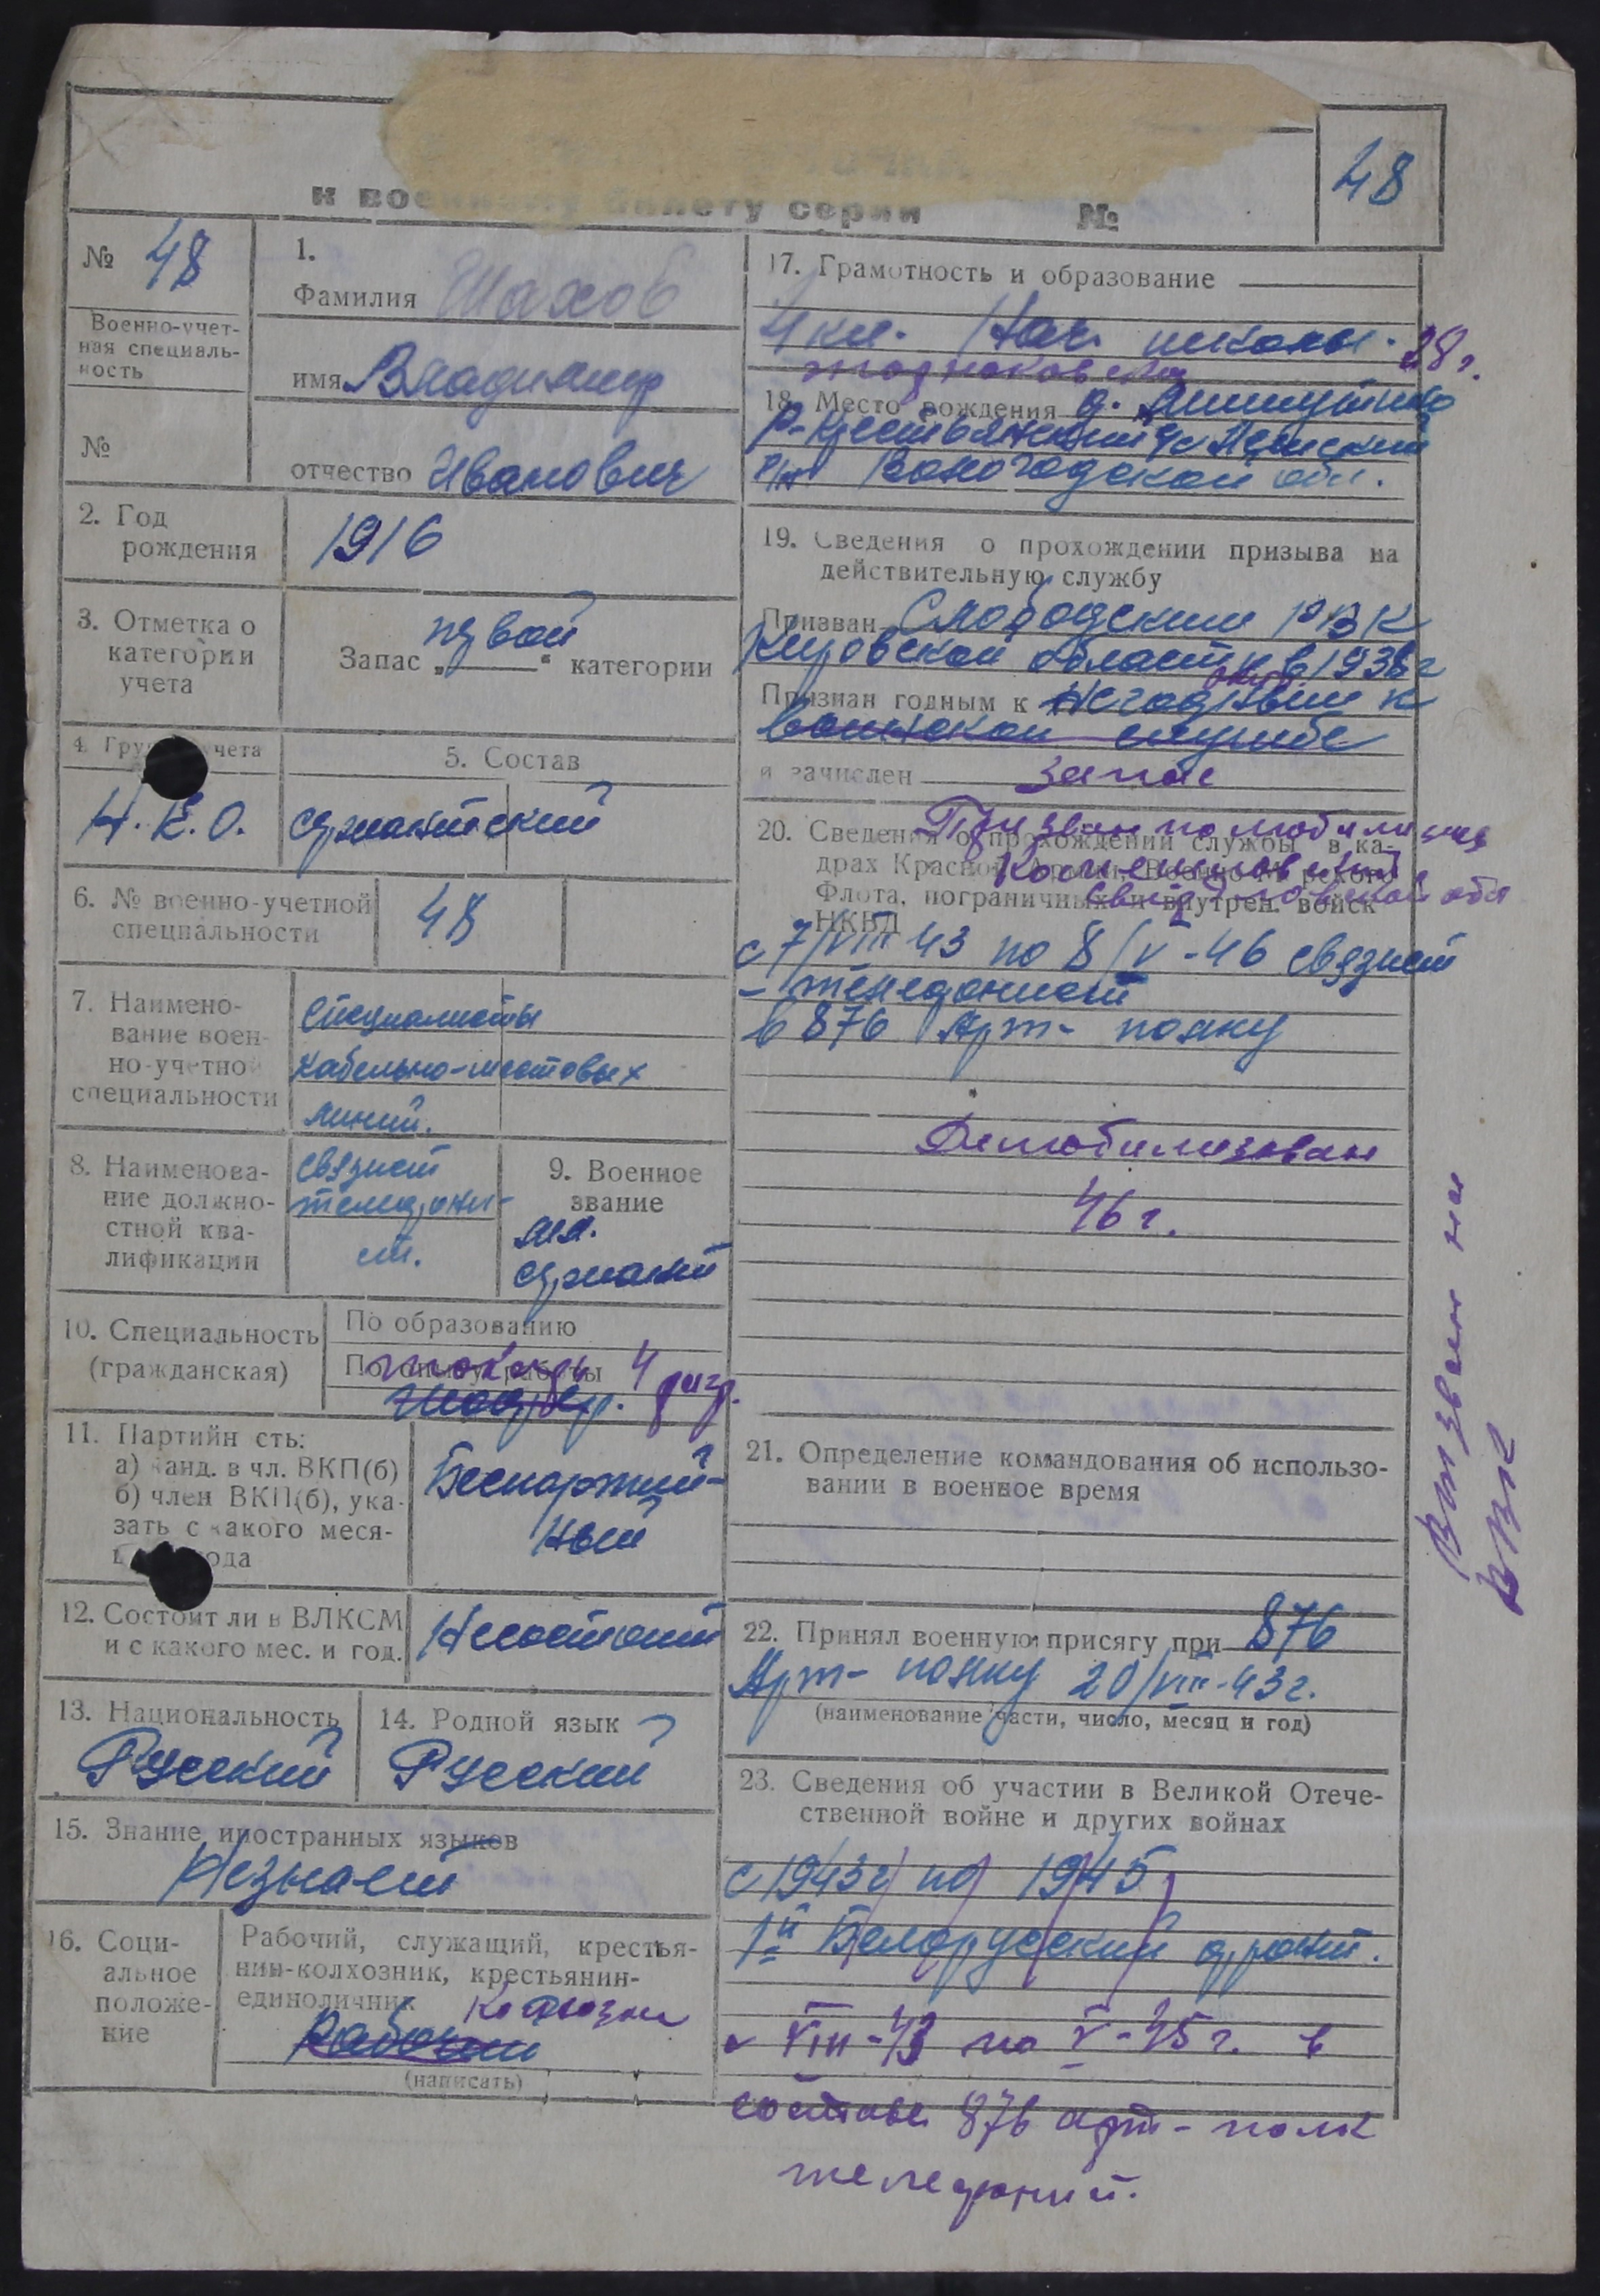 к военному билету серии №
48
№ 48
Военно-учет-
ная специаль-
ность
№
1.
Фамилия Шахов
имя Владимир
отчество Иванович
2. Год
рождения
1916
3. Отметка о
категории
учета
Запас „первой“ категории
4. Группа учета
Н.К.О.
5. Состав
сержантский
6. № военно-учетной
специальности
48
7. Наимено-
вание воен-
но-учетной
специальности
специалисты
кабельно-шестовых
линий.
8. Наименова-
ние должно-
стной ква-
лификации
связист
телефони-
ст.
9. Военное
звание
мл.
сержант
10. Специальность
(гражданская)
По образованию
По опыту работы
токарь 4 разр.
11. Партийн сть:
а) канд. в чл. ВКП(б)
б) член ВКП(б), ука-
зать с какого меся-
ца года
Беспартий-
ный
12. Состоит ли в ВЛКСМ
и с какого мес. и год.
Несостоит
13. Национальность
Русский
14. Родной язык
Русский
15. Знание иностранных языков
Незнает
16. Соци-
альное
положе-
ние
Рабочий, служащий, крестья-
нин-колхозник, крестьянин-
единоличник
Рабочий
(написать)
17. Грамотность и образование
4 кл. Нач. школы. 28 г.
18. Место рождения д.
Р-н
Вологодской обл.
19. Сведения о прохождении призыва на
действительную службу
Призван Слободским РВК
Кировской области в 1938 г
Признан годным к Негодным к
воинской службе
и зачислен запас
Призван по мобилизации
20. Сведения о прохождении службы в ка-
драх Красной Армии, Военно-Морского
Флота, пограничных и внутрен. войск
НКВД
Свердловской обл
с 7/VIII 43 по 8/V-46 связист
– телефонист
в 876 Арт- полку
Демобилизован
46 г.
21. Определение командования об использо-
вании в военное время
22. Принял военную присягу при 876
Арт- полку 20/VIII-43 г.
(наименование части, число, месяц и год)
23. Сведения об участии в Великой Отече-
ственной войне и других войнах
с 1943 г по 1945
1й Белорусский фронт.
с VIII-43 по V-45 г. в
составе 876 арт- полк